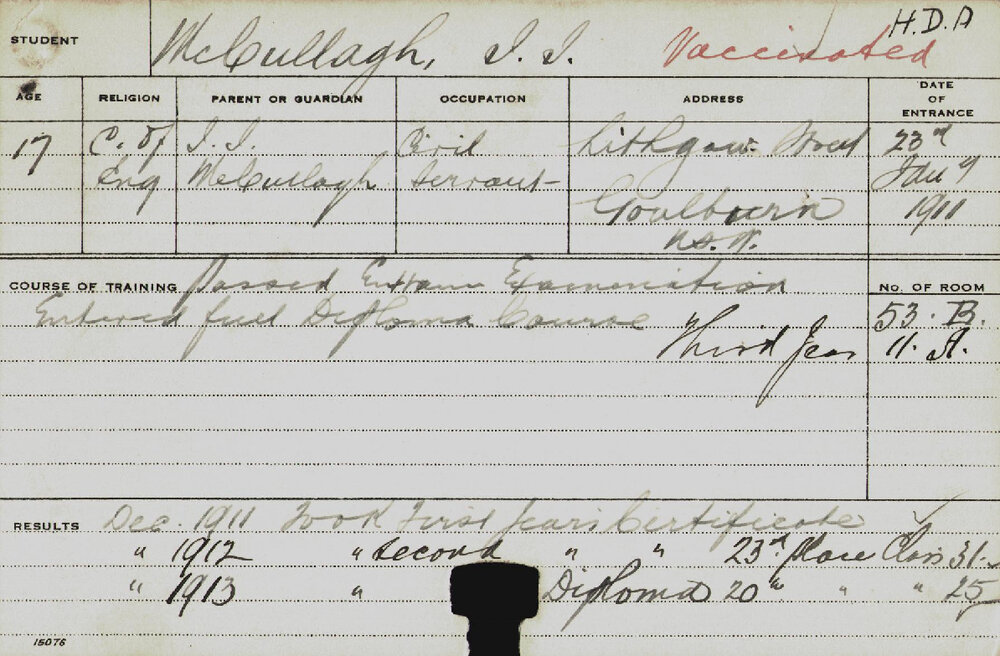 H.D.A
STUDENT McCullagh, I. I. Vaccinated
AGE RELIGION PARENT OR GUARDIAN OCCUPATION ADDRESS DATE OF ENTRANCE
17 C. of I. I. Civil Lithgow Street 23rd
Eng McCullagh Servant Jany
Goulburn 1911
N.S.W.
COURSE OF TRAINING Passed Entran Examination No. OF ROOM
Entered full Diploma Course 53. B.
Third Year 11. A.
RESULTS Dec. 1911 Took First Years Certificate
" 1912 " Second " " 23rd place Class 31
" 1913 " Diploma 20th " " 25
15076